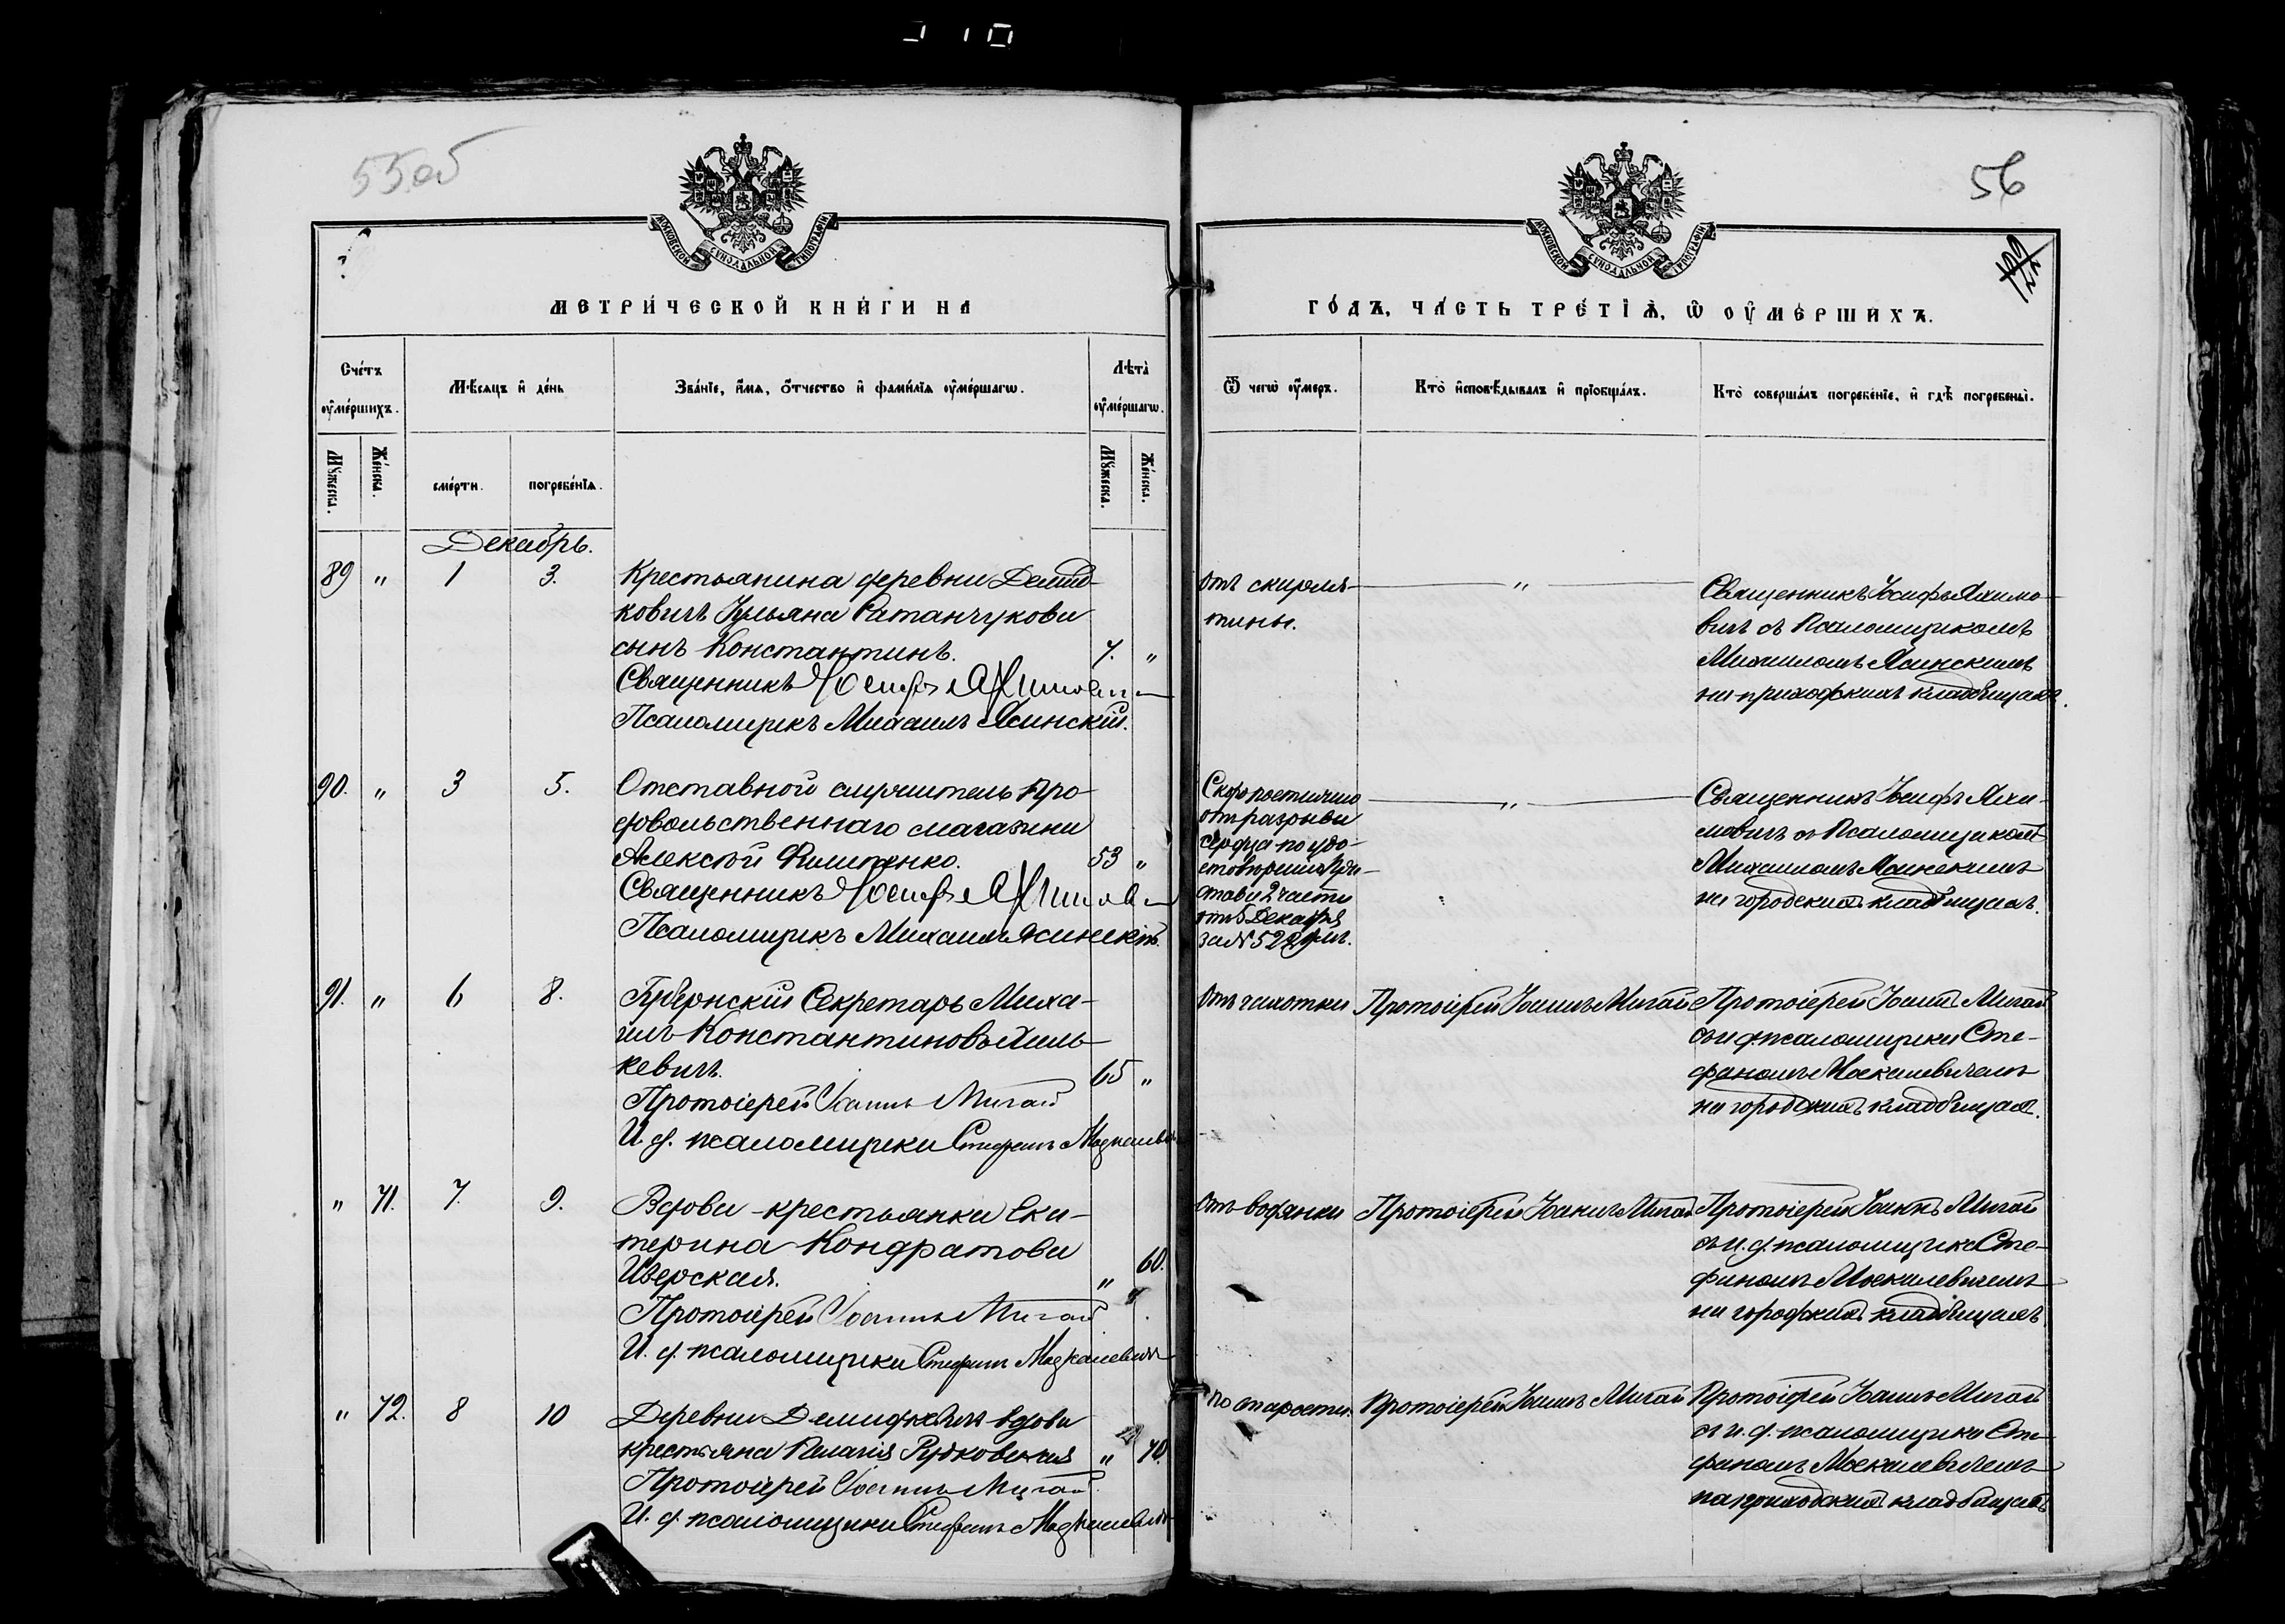 55 об
56
122
МОСКОВСКОЙ СѴНОДАЛЬНОЙ ТИПОГРАФІИ
МОСКОВСКОЙ СѴНОДАЛЬНОЙ ТИПОГРАФІИ
МЕТРИ́ЧЕСКОЙ КНИ́ГИ НА
ГО́ДЪ, ЧА́СТЬ ТРЕ́ТІѦ, Ѽ ОУ҆МЕ́РШИХЪ.
Сче́тъ оу҆ме́ршихъ.
Мѣ́сяцъ и҆ де́нь
Зва́нїе, и҆́мя, ѻ҆́тчество и҆ фами́лїя оу҆ме́ршагѡ.
Лѣ́та̀ оу҆ме́ршагѡ.
Ѿ чегѡ̀ оу҆́меръ.
Кто̀ и҆сповѣ́дывалъ и҆ прїобща́лъ.
Кто̀ соверша́лъ погребе́нїе, и҆ гдѣ̀ погребены̀.
Му́жеска.
Же́нска.
сме́рти.
погребе́нїя.
Му́жеска.
Же́нска.
Декабрь.
89 " 1 3.
Крестьянина деревни Демид-
ковичъ Ульяна Ратанчукова
сынъ Константинъ. 7. "
Священникъ Іосифъ Яхимович
Псаломщикъ Михаилъ Ясинскій.
отъ скарля-
тины.
"
Священникъ Іосифъ Яхимо-
вичъ съ Псаломщикомъ
Михаиломъ Ясинскимъ
на приходскихъ кладбищахъ.
90. " 3 5.
Отставной смотритель про-
довольственнаго магазина
Алексѣй Филипенко. 53 "
Священникъ Іосифъ Яхимович
Псаломщикъ Михаилъ Ясинскій.
Скоропостижно
отъ разрыва
сердца по удо-
стовѣренію При-
става 2 части
отъ 5 Декабря
за №
"
Священникъ Іосифъ Яхи-
мовичъ съ Псаломщикомъ
Михаиломъ Ясинскимъ
на городскихъ кладбищахъ.
91. " 6 8.
Губернскій Секретарь Миха-
илъ Константиновъ Хиль-
кевичъ. 65 "
Протоіерей Іоаннъ Мигай
И. д. псаломщика Стефанъ Москалевичъ
отъ чахотки
Протоіерей Іоаннъ Мигай
Протоіерей Іоаннъ Мигай
съ и. д. псаломщика Сте-
фаномъ Москалевичемъ
на городскихъ кладбищахъ.
" 71. 7. 9.
Вдова - крестьянка Ека-
терина Кондратова
Иверская. " 60.
Протоіерей Іоаннъ Мигай
И. д. псаломщика Стефанъ Москалевичъ
отъ водянки
Протоіерей Іоаннъ Мигай
Протоіерей Іоаннъ Мигай
съ и. д. псаломщика Сте-
фаномъ Москалевичемъ
на городскихъ кладбищахъ.
" 72. 8 10
Деревни Демидковичъ вдова
крестьянка Пелагія Рудковская " 70.
Протоіерей Іоаннъ Мигай
И. д. псаломщика Стефанъ Москалевичъ
по старости.
Протоіерей Іоаннъ Мигай
Протоіерей Іоаннъ Мигай
съ и. д. псаломщика Сте-
фаномъ Москалевичемъ
на приходскихъ кладбищахъ